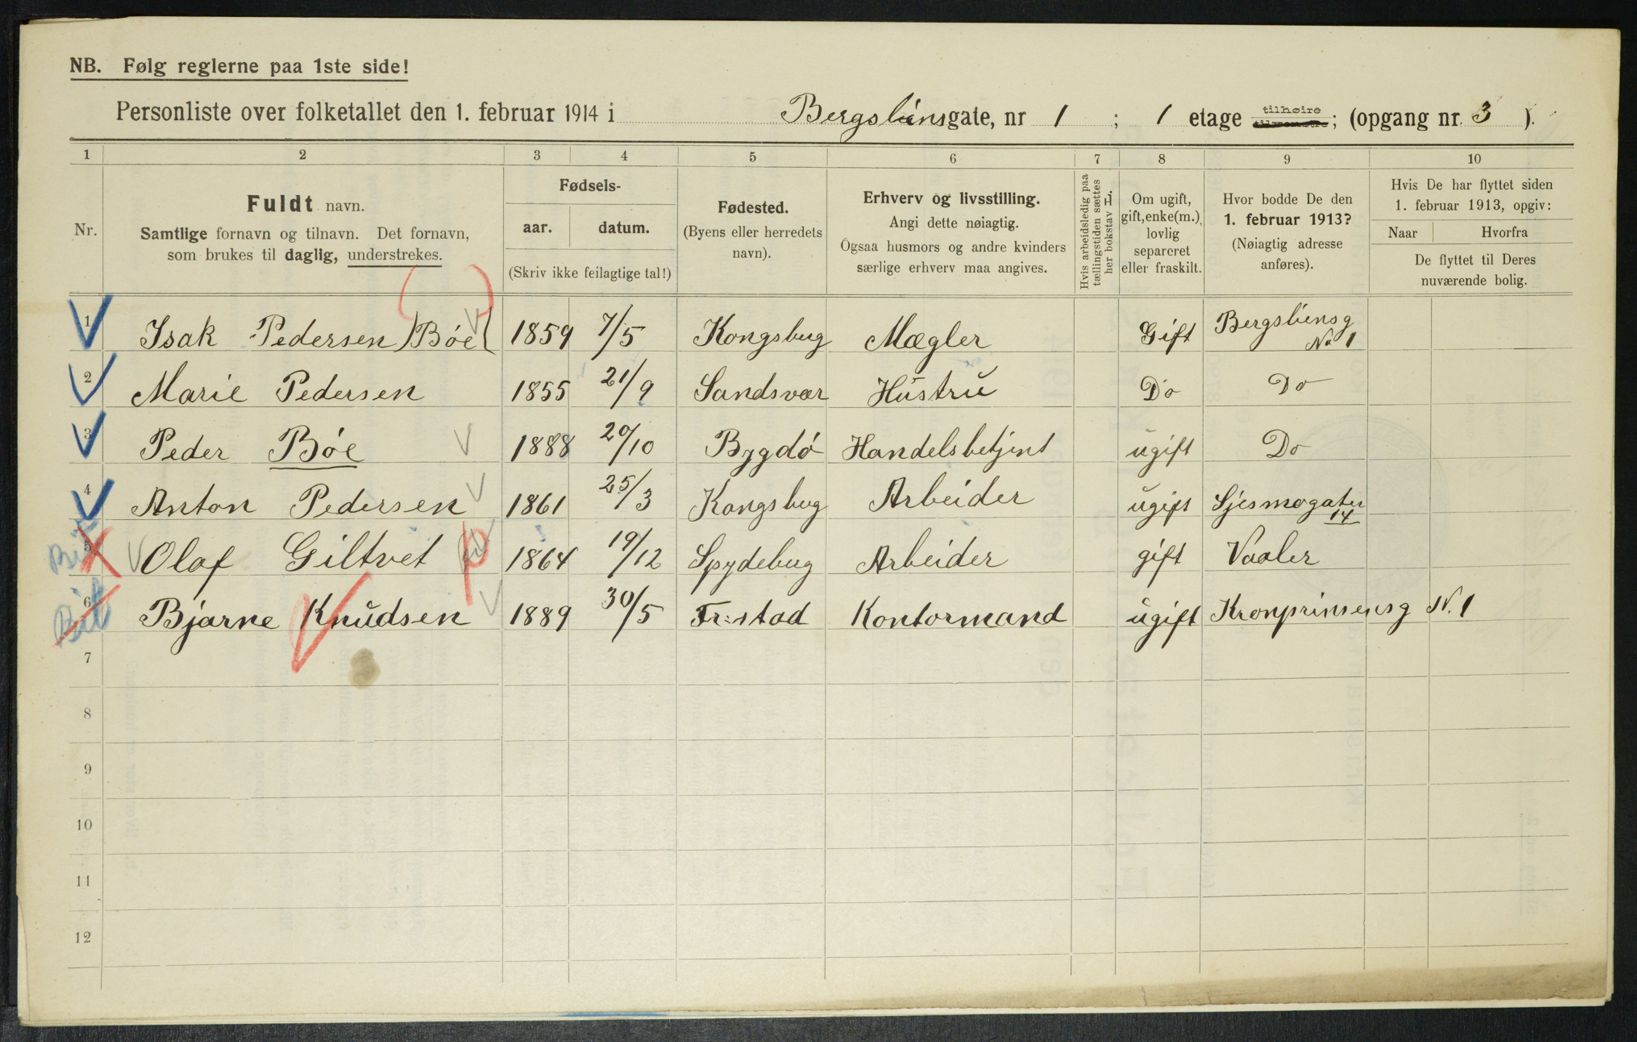 NB. Følg reglerne paa 1ste side!
Personliste over folketallet den 1. februar 1914 i Bergsliensgate, nr 1 ; 1 etage tilhøire ; (opgang nr. 3 ).
1 2 3 4 5 6 7 8 9 10
Nr.
Fuldt navn.
Samtlige fornavn og tilnavn. Det fornavn,
som brukes til daglig, understrekes.
Fødsels-
aar. datum.
(Skriv ikke feilagtige tal!)
Fødested.
(Byens eller herredets
navn).
Erhverv og livsstilling.
Angi dette nøiagtig.
Ogsaa husmors og andre kvinders
særlige erhverv maa angives.
Hvis arbeidsledig paa
tællingstiden sættes
her bokstav L.
Om ugift,
gift, enke(m.),
lovlig
separeret
eller fraskilt.
Hvor bodde De den
1. februar 1913?
(Nøiagtig adresse
anføres).
Hvis De har flyttet siden
1. februar 1913, opgiv:
Naar Hvorfra
De flyttet til Deres
nuværende bolig.
1 Isak Pedersen (Bøe) 1859 7/5 Kongsbug Mægler Gift Bergsliensg No 1
2 Marie Pedersen 1855 21/9 Sandsvær Hustru Do Do
3 Peder Bøe 1888 20/10 Bygdö Handelsbetjent ugift Do
4 Anton Pedersen 1861 25/3 Kongsbug Arbeider ugift 14
5 Olaf Giltvet 1864 19/12 Spydebug Arbeider gift Vaaler
6 Bjarne Knudsen 1889 30/5 Fr:stad Kontormand ugift Kronprinsensg N. 1
7
8
9
10
11
12